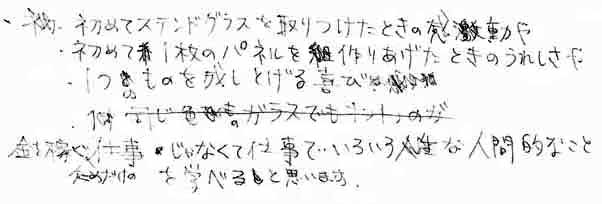 ・初めてステンドグラスを取りつけたときの感激動や
・初めて1枚のパネルを組作りあげたときのうれしさや
・1つのものを成しとげる喜び
・同じ色のガラスでも
金を稼ぐ仕事じゃなくて仕事でいろいろな人間的なこと
ためだけの を学べると思います。